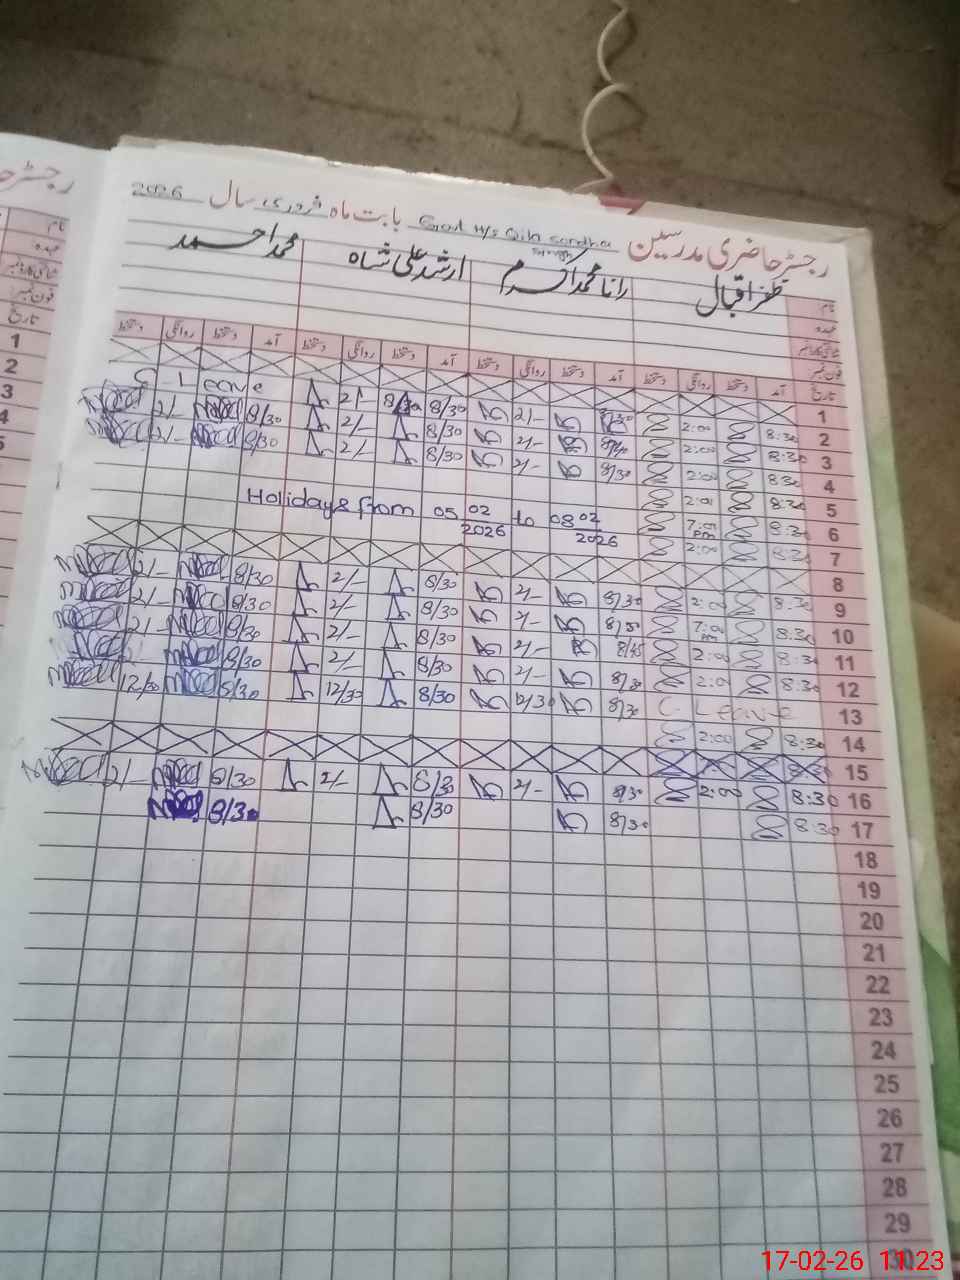 رجسٹر حاضری مدرسین Govt H/S Qila Sondha بابت ماہ فروری سال 2026
نام ظفر اقبال رانا محمد اکرم ارشد علی شاہ محمد احمد
عہدہ
شناختی کارڈ نمبر
فون نمبر
تاریخ آمد دستخط روانگی دستخط آمد دستخط روانگی دستخط آمد دستخط روانگی دستخط آمد دستخط روانگی دستخط
1
2 8:30 2:00 8/30 2/- 8/30 8/30 2/- C Leave
3 8:30 2:00 2/- 8/30 2/- 8/30 2/-
4 8:30 2:00 8/30 2/- 8/30 2/- 8/30 2/-
5 8:30 2:01
6 8:30 7:01 pm Holidays from 05 02 2026 to 08 02 2026
7 8:30 2:00
8
9 8:30 2:00 8/30 2/- 8/30 2/- 8/30 2/-
10 8:30 7:00 pm 8/30 2/- 8/30 2/- 8/30 2/-
11 8:30 2:00 8/45 2/- 8/30 2/- 8/30 2/-
12 8:30 2:00 8/30 2/- 8/30 2/- 8/30
13 C. Leave 8/30 12/30 8/30 12/30 8/30 12/30
14 8:30 2:00
15 8:30
16 8:30 2:00 8/30 2/- 8/30 2/- 8/30 2/-
17 8:30 8/30 8/30 8/30
18
19
20
21
22
23
24
25
26
27
28
29
30
رجسٹر حا
نام
عہدہ
شناختی کارڈ نمبر
فون نمبر
تاریخ
1
2
3
4
5
17-02-26 11:23